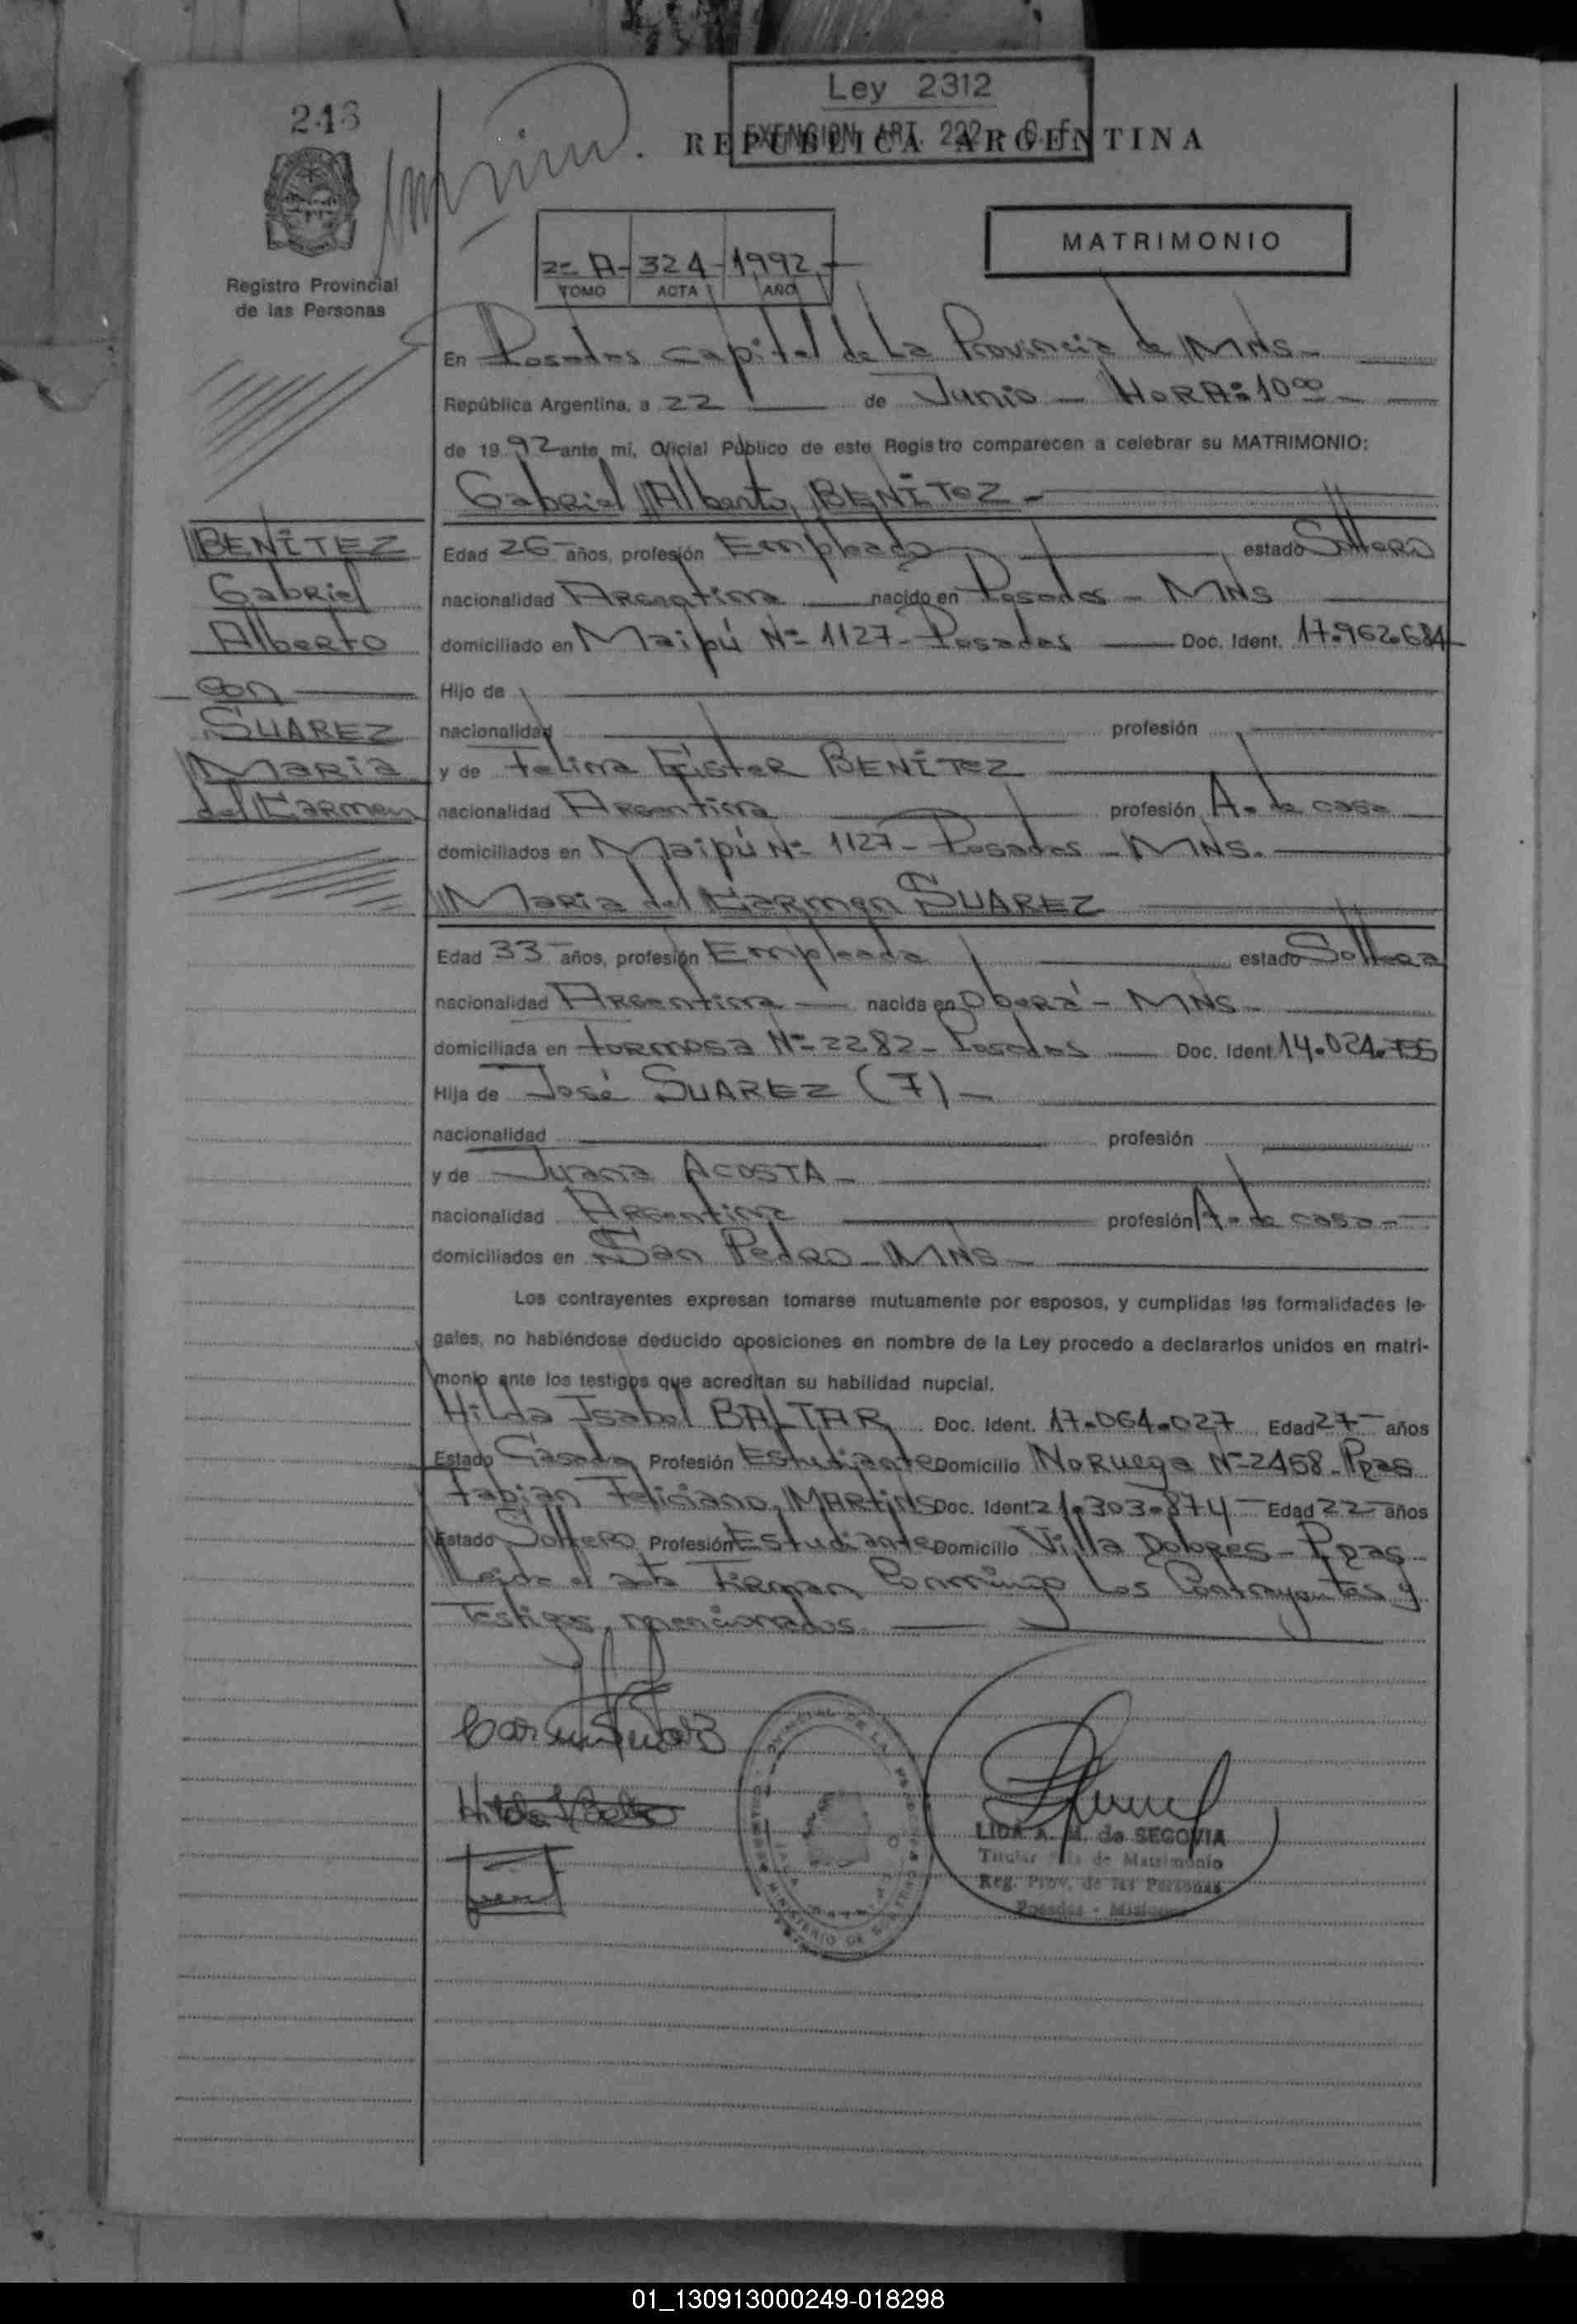 243
Ley 2312
EXENCION ART. 292
REPUBLICA ARGENTINA
MATRIMONIO
2º A - 324 - 1992 -
TOMO ACTA AÑO
Registro Provincial
de las Personas
En Posadas Capital de La Provincia de MNS -
República Argentina, a 22 de Junio - HORA: 10 00 -
de 1992 ante mí, Oficial Público de este Registro comparecen a celebrar su MATRIMONIO:
Gabriel Alberto BENÍTEZ -
BENÍTEZ
Gabriel
Alberto
con
SUAREZ
María
del Carmen
Edad 26 años, profesión Empleado estado Soltero
nacionalidad Argentina nacido en Posadas - MNS
domiciliado en Maipú Nº 1127 - Posadas Doc. Ident. 17.962.684
Hijo de
nacionalidad profesión
y de Felina Ester BENÍTEZ
nacionalidad Argentina profesión A. de casa
domiciliados en Maipú Nº 1127 - Posadas - MNS.
María del Carmen SUAREZ
Edad 33 años, profesión Empleada estado Soltera
nacionalidad Argentina nacida en Oberá - MNS -
domiciliada en Formosa Nº 2282 - Posadas Doc. Ident. 14.024.735
Hija de José SUAREZ (7) -
nacionalidad profesión
y de Juana ACOSTA -
nacionalidad Argentina profesión A. de casa -
domiciliados en San Pedro - MNS -
Los contrayentes expresan tomarse mutuamente por esposos, y cumplidas las formalidades le-
gales, no habiéndose deducido oposiciones en nombre de la Ley procedo a declararlos unidos en matri-
monio ante los testigos que acreditan su habilidad nupcial.
Hilda Isabel BALTAR Doc. Ident. 17.064.027 Edad 27 años
Estado Casada Profesión Estudiante Domicilio Noruega Nº 2458 - Ppas
Fabián Feliciano MARTINS Doc. Ident. 21.303.874 - Edad 22 años
Estado Soltero Profesión Estudiante Domicilio Villa Dolores - Ppas -
Leída el acta Firman Conmingo Los Contrayentes y
Testigos mencionados
LIDA A. M. de SEGOVIA
Titular de Matrimonio
Reg. Prov. de las Personas
Posadas - Misiones
01_130913000249-018298